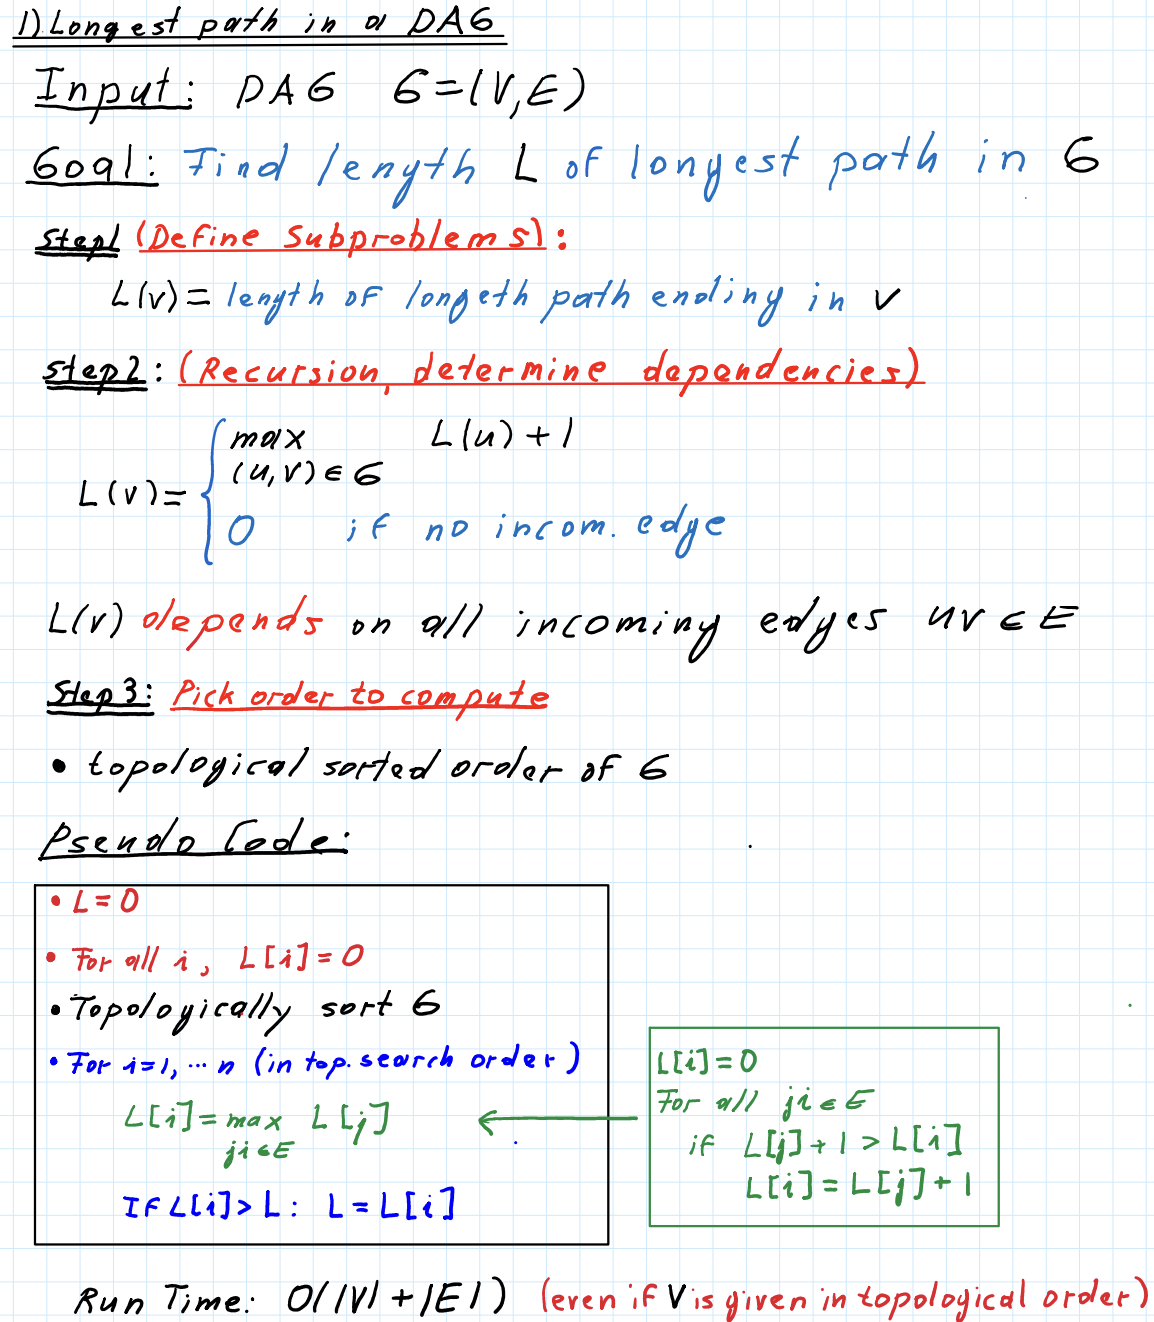 1) Longest path in a DAG
Input: DAG G=(V,E)
Goal: Find length L of longest path in G
Step1 (Define Subproblems):
L(v) = length of longeth path ending in v
Step2: (Recursion, determine dependencies)
L(v) = { max L(u) + 1
(u,v) ∈ G
0 if no incom. edge
L(v) depends on all incoming edges uv ∈ E
Step3: Pick order to compute
• topological sorted order of G
Pseudo Code:
• L = 0
• For all i, L[i] = 0
• Topologically sort G
• For i=1, ... n (in top. search order)
L[i] = max L[j]
ji ∈ E
If L[i] > L: L = L[i]
L[i] = 0
For all ji ∈ E
if L[j] + 1 > L[i]
L[i] = L[j] + 1
Run Time: O(|V| + |E|) (even if V is given in topological order)